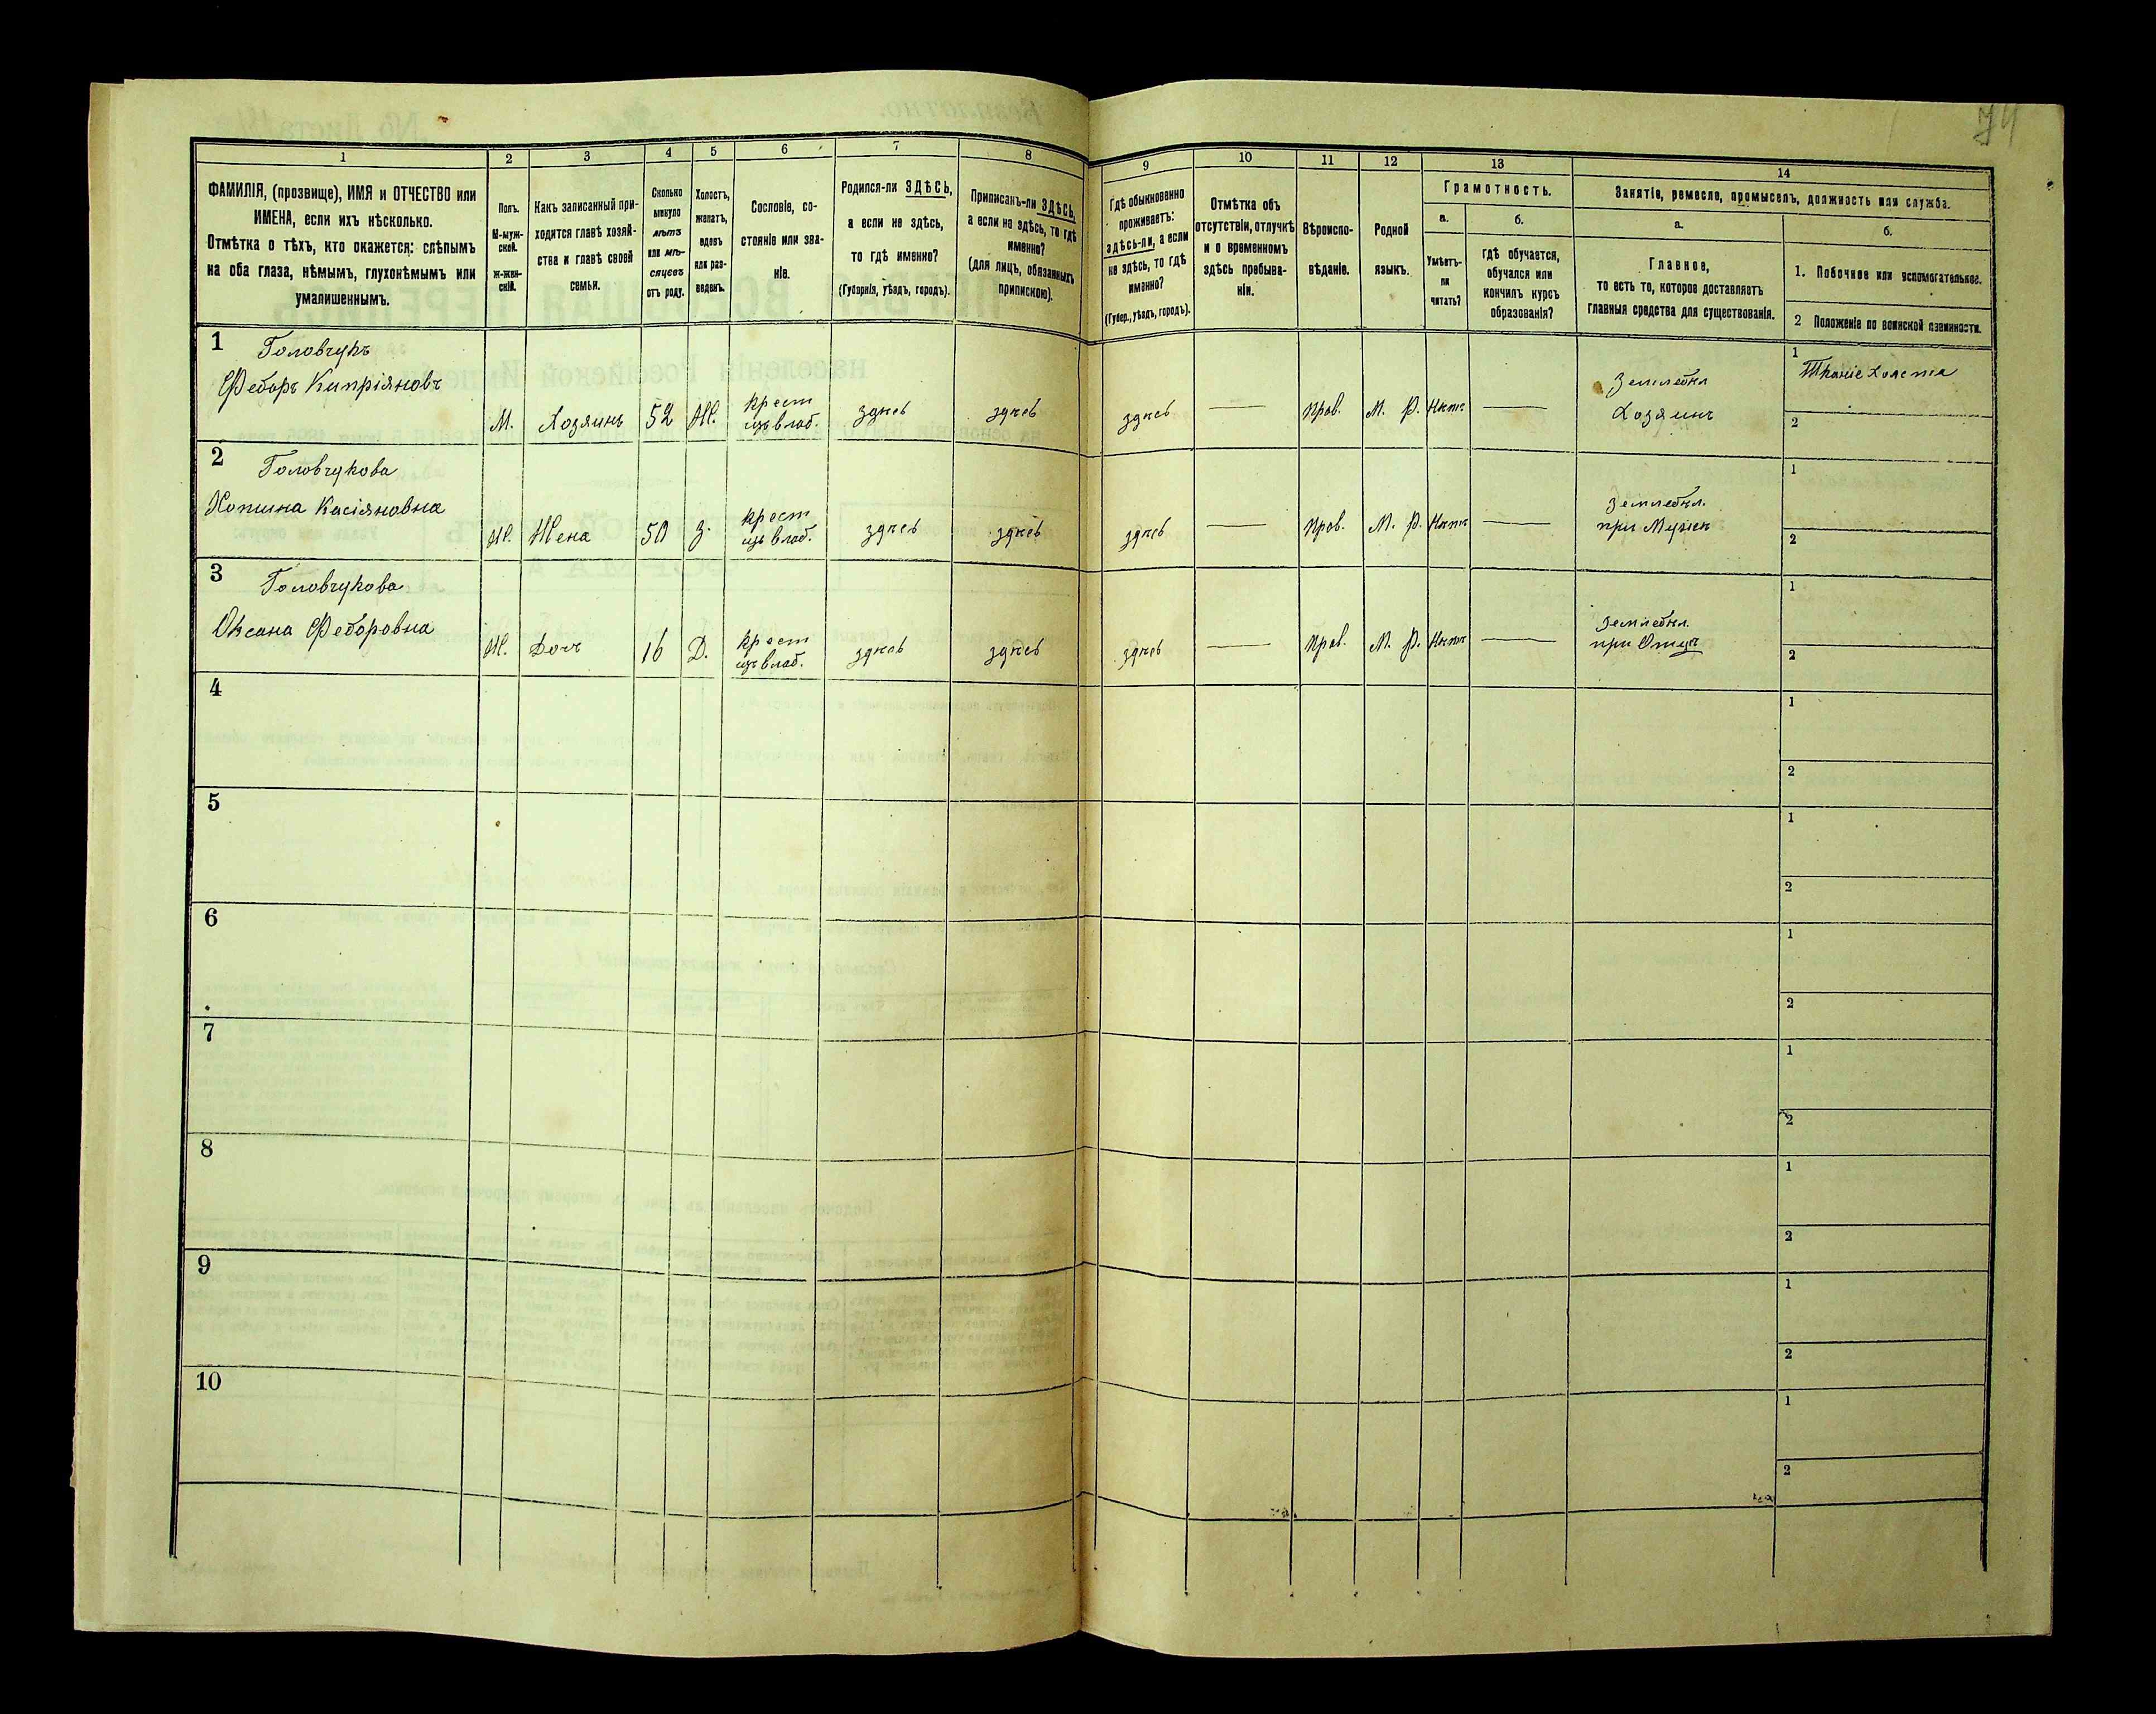 74
1 2 3 4 5 6 7 8 9 10 11 12 13 14
ФАМИЛІЯ, (прозвище), ИМЯ и ОТЧЕСТВО или
ИМЕНА, если ихъ нѣсколько.
Отмѣтка о тѣхъ, кто окажется: слѣпымъ
на оба глаза, нѣмымъ, глухонѣмымъ или
умалишеннымъ.
Полъ.
М-муж-
ской.
Ж-жен-
скій.
Какъ записанный при-
ходится главѣ хозяй-
ства и главѣ своей
семьи.
Сколько
минуло
лѣтъ
или мѣ-
сяцевъ
отъ роду.
Холостъ,
женатъ,
вдовъ
или раз-
веденъ.
Сословіе, со-
стояніе или зва-
ніе.
Родился-ли ЗДѢСЬ,
а если не здѣсь,
то гдѣ именно?
(Губернія, уѣздъ, городъ).
Приписанъ-ли ЗДѢСЬ,
а если не здѣсь, то гдѣ
именно?
(для лицъ, обязанныхъ
припискою).
Гдѣ обыкновенно
проживаетъ:
здѣсь-ли, а если
не здѣсь, то гдѣ
именно?
(Губер., уѣздъ, городъ).
Отмѣтка объ
отсутствіи, отлучкѣ
и о временномъ
здѣсь пребыва-
ніи.
Вѣроиспо-
вѣданіе.
Родной
языкъ.
Грамотность.
а.
Умѣетъ-
ли
читать?
б.
Гдѣ обучается,
обучался или
кончилъ курсъ
образованія?
Занятіе, ремесло, промыселъ, должность или служба.
а.
Главное,
то есть то, которое доставляетъ
главныя средства для существованія.
б.
1. Побочное или вспомогательное.
2 Положеніе по воинской повинности.
1 Головчукъ
Федоръ Кипріяновъ
М. Хозяинъ 52 Ж. крест изъ влад. здѣсь здѣсь здѣсь — Прав. М. Р. Нѣтъ —
Земледѣл
Хозяинъ
1 Тканіе Холста
2
2 Головчукова
Касіяновна
Ж. Жена 50 З. крест изъ влад. здѣсь здѣсь здѣсь — Прав. М. Р. Нѣтъ —
Земледѣл.
при Мужѣ
1
2
3 Головчукова
Оксана Федоровна
Ж. Дочь 16 Д. крест изъ влад. здѣсь здѣсь здѣсь — Прав. М. Р. Нѣтъ —
Земледѣл.
при Отцѣ
1
2
4
1
2
5
1
2
6
1
2
7
1
2
8
1
2
9
1
2
10
1
2